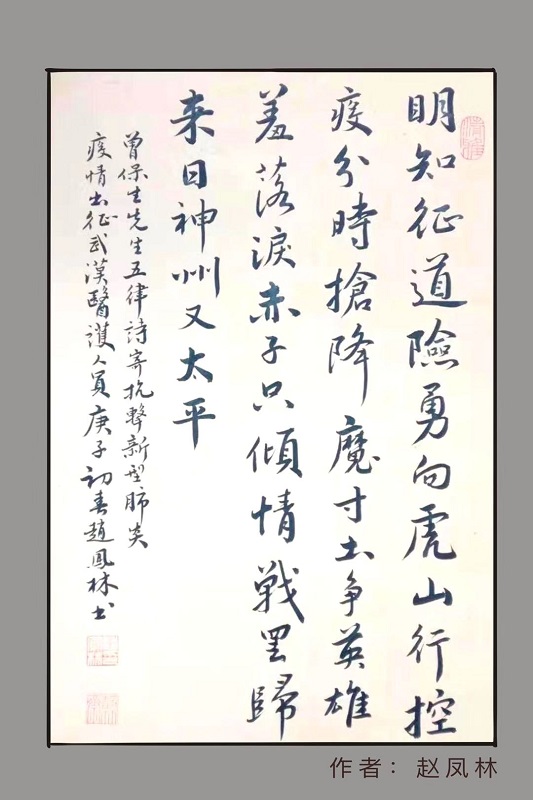 明知征道險勇向虎山行控
疫分時搶降魔寸土争英雄
羞落淚赤子只傾情戦罢歸
来日神州又太平
曾保生先生五律詩寄抗擊新型肺炎
疫情出征武漢醫護人員庚子初春趙鳳林书
作者：赵凤林